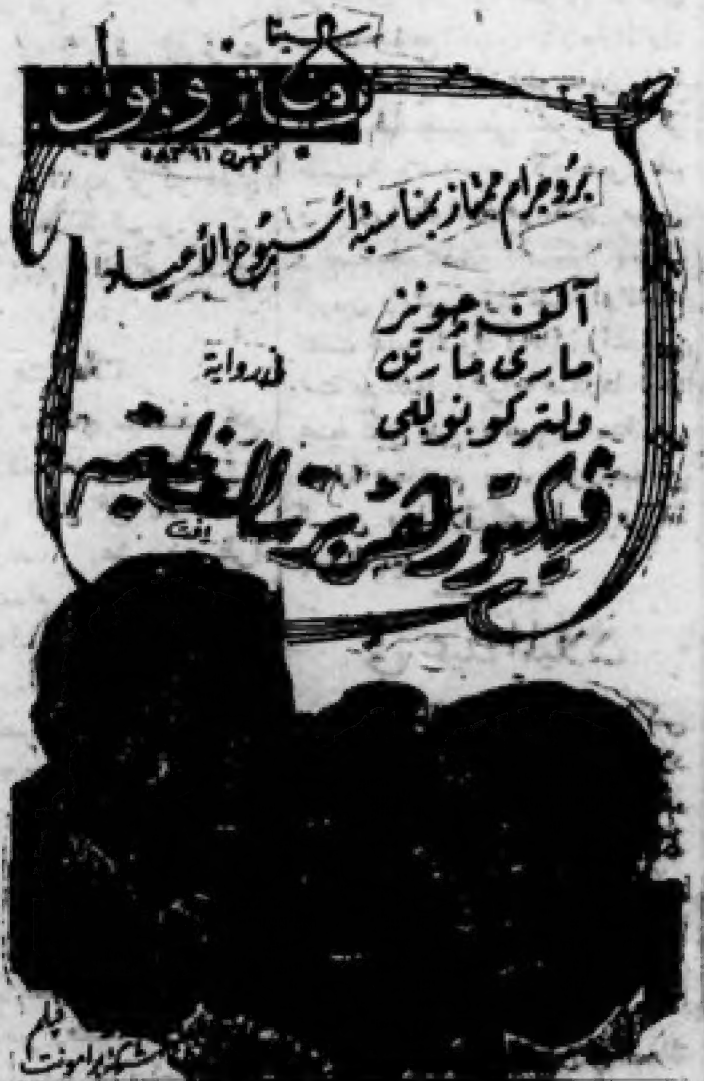 سينما
متروبول
تليفون ٥٨٣٩١
بروجرام ممتاز بمناسبة أسبوع الأعياد
آلان چونز
ماري مارتن
في رواية
ولتر كونوللي
فيكتور هربرت العظيم
فيلم
شركة برامونت